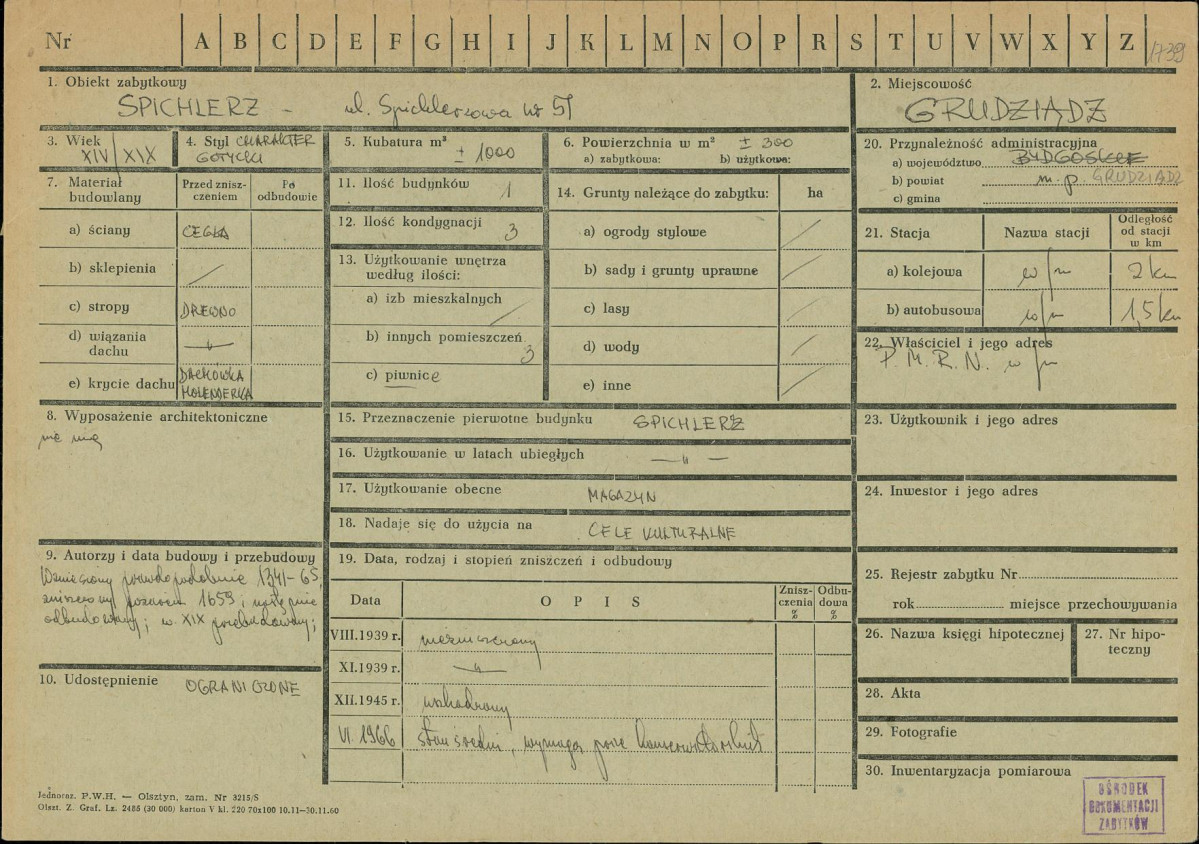 Nr A B C D E F G H I J K L M N O P R S T U V W X Y Z 1739
1. Obiekt zabytkowy
SPICHLERZ - ul. Spichlerzowa nr 51
2. Miejscowość
GRUDZIĄDZ
3. Wiek
XIV/XIX
4. Styl CHARAKTER
GOTYCKI
5. Kubatura m³
± 1000
6. Powierzchnia w m² ± 300
a) zabytkowa: b) użytkowa:
20. Przynależność administracyjna
a) województwo BYDGOSKIE
b) powiat m.p. GRUDZIĄDZ
c) gmina
7. Materiał budowlany
Przed zniszczeniem
Po odbudowie
a) ściany CEGŁA
b) sklepienia /
c) stropy DREWNO
d) wiązania dachu —„—
e) krycie dachu DACHÓWKA
HOLENDERKA
11. Ilość budynków 1
12. Ilość kondygnacji 3
13. Użytkowanie wnętrza
według ilości:
a) izb mieszkalnych /
b) innych pomieszczeń 3
c) piwnice
14. Grunty należące do zabytku: ha
a) ogrody stylowe /
b) sady i grunty uprawne /
c) lasy /
d) wody /
e) inne /
21. Stacja
Nazwa stacji
Odległość
od stacji
w km
a) kolejowa w/m 2 km
b) autobusowa w/m 1,5 km
22. Właściciel i jego adres
P.M.R.N. w/m
8. Wyposażenie architektoniczne
nie ma
15. Przeznaczenie pierwotne budynku SPICHLERZ
16. Użytkowanie w latach ubiegłych —„—
17. Użytkowanie obecne MAGAZYN
18. Nadaje się do użycia na CELE KULTURALNE
23. Użytkownik i jego adres
24. Inwestor i jego adres
9. Autorzy i data budowy i przebudowy
Wzniesiony prawdopodobnie 1341-65,
zniszczony pożarem 1659, następnie
odbudowany; w XIX przebudowany;
10. Udostępnienie OGRANICZONE
19. Data, rodzaj i stopień zniszczeń i odbudowy
Data
OPIS
Zniszczenia %
Odbudowa %
VIII.1939 r. niezniszczony
XI.1939 r. —„—
XII.1945 r. uszkodzony
VI.1966 stan średni, wymaga prac konserwatorskich
25. Rejestr zabytku Nr
rok miejsce przechowywania
26. Nazwa księgi hipotecznej
27. Nr hipoteczny
28. Akta
29. Fotografie
30. Inwentaryzacja pomiarowa
OŚRODEK
DOKUMENTACJI
ZABYTKÓW
Jednocaz. P.W.H. — Olsztyn, zam. Nr 3215/S
Olszt. Z. Graf. Lz. 2485 (30 000) karton V kl. 220 70x100 10.11—30.11.60